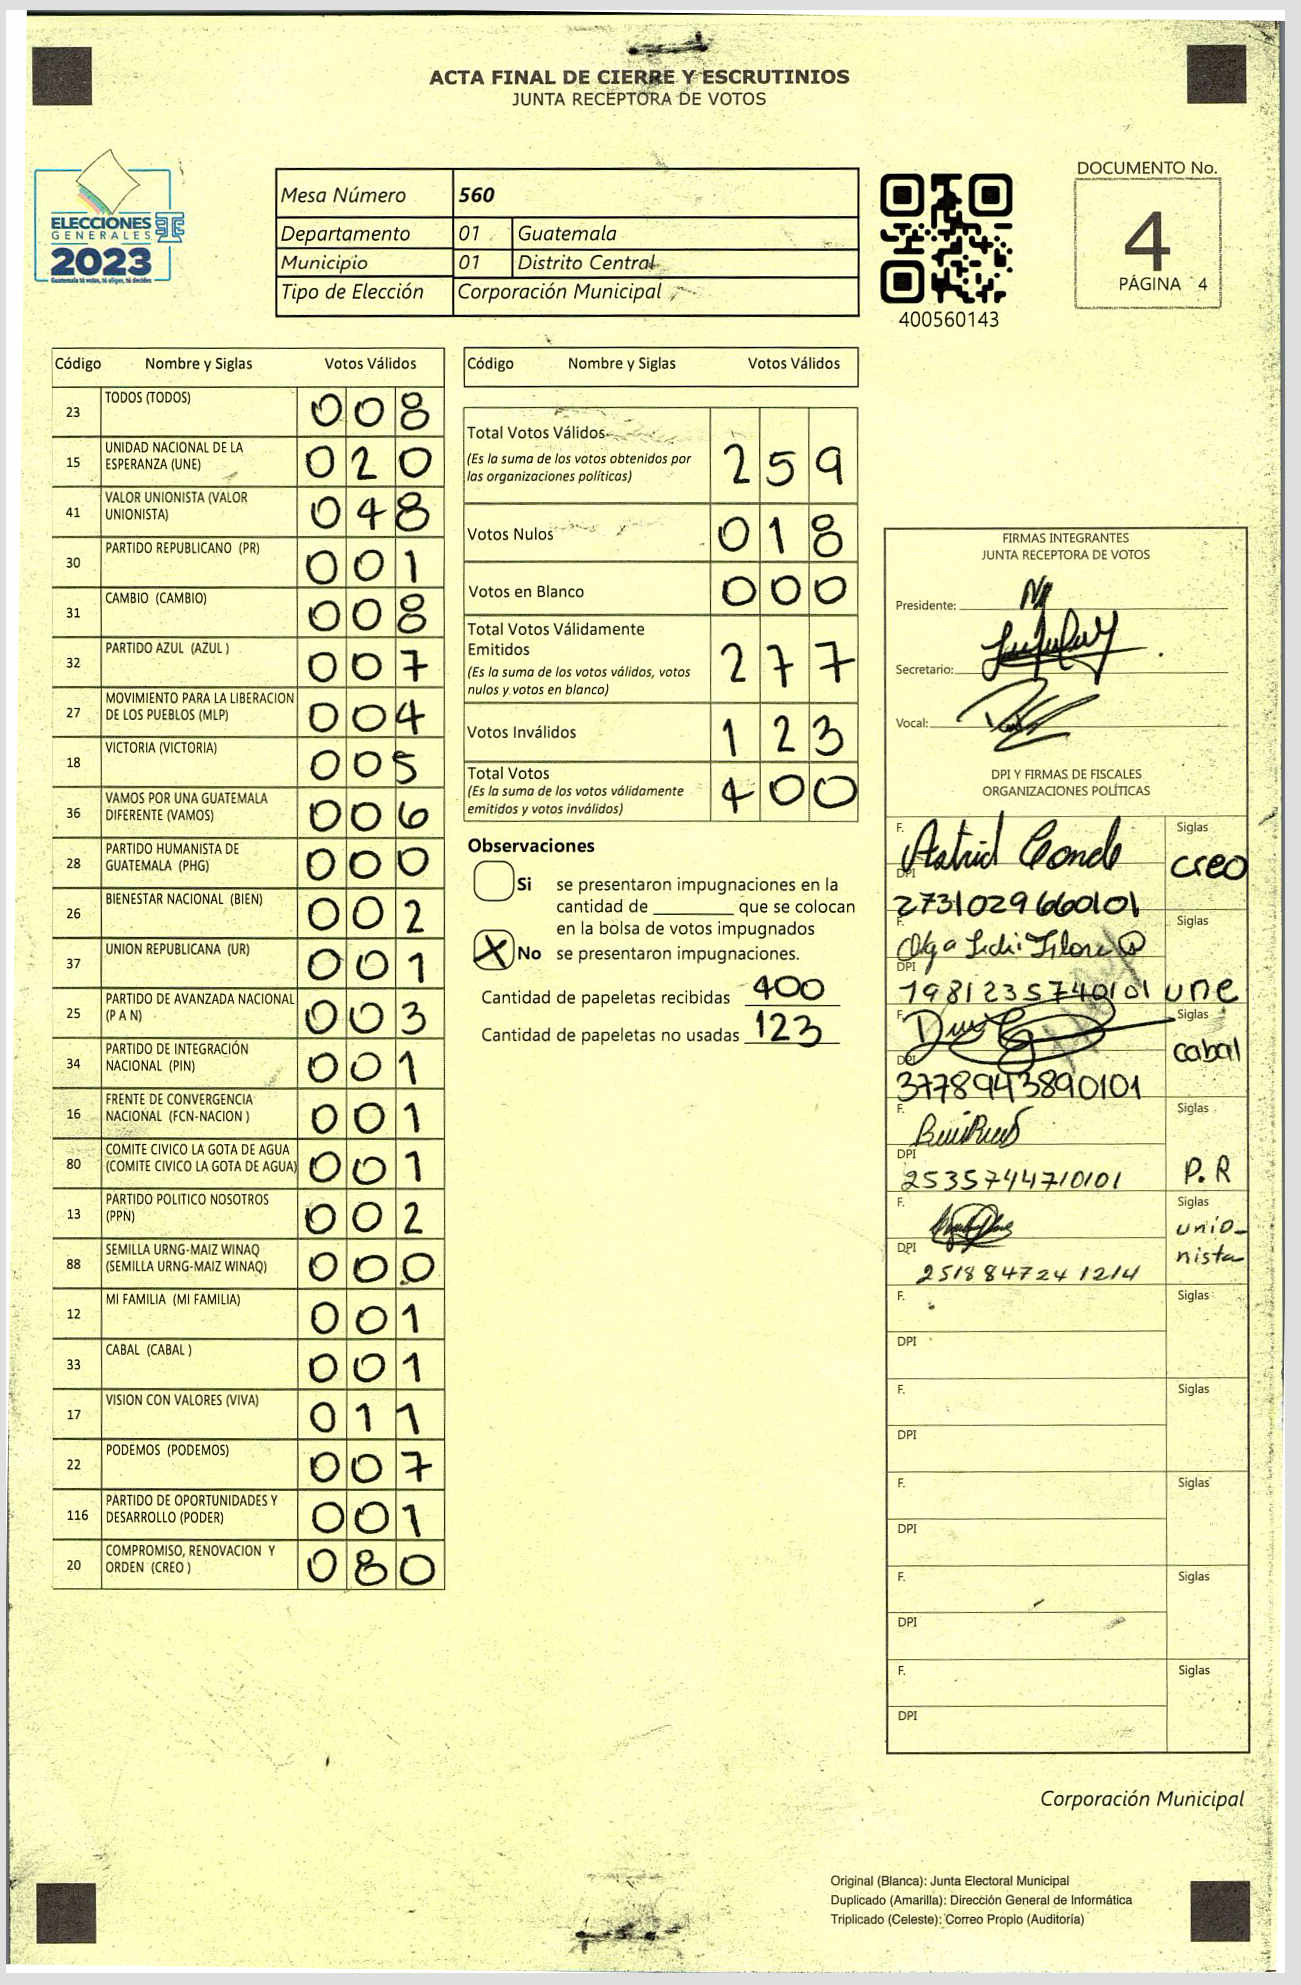 ACTA FINAL DE CIERRE Y ESCRUTINIOS
JUNTA RECEPTORA DE VOTOS
ELECCIONES
GENERALES
2023
Guatemala tú votas, tú eliges, tú decides
Mesa Número 560
Departamento 01 Guatemala
Municipio 01 Distrito Central
Tipo de Elección Corporación Municipal
400560143
DOCUMENTO No.
4
PÁGINA 4
Código Nombre y Siglas Votos Válidos
23 TODOS (TODOS) 008
15 UNIDAD NACIONAL DE LA
ESPERANZA (UNE) 020
41 VALOR UNIONISTA (VALOR
UNIONISTA) 048
30 PARTIDO REPUBLICANO (PR) 001
31 CAMBIO (CAMBIO) 008
32 PARTIDO AZUL (AZUL ) 007
27 MOVIMIENTO PARA LA LIBERACION
DE LOS PUEBLOS (MLP) 004
18 VICTORIA (VICTORIA) 005
36 VAMOS POR UNA GUATEMALA
DIFERENTE (VAMOS) 006
28 PARTIDO HUMANISTA DE
GUATEMALA (PHG) 000
26 BIENESTAR NACIONAL (BIEN) 002
37 UNION REPUBLICANA (UR) 001
25 PARTIDO DE AVANZADA NACIONAL
(P A N) 003
34 PARTIDO DE INTEGRACIÓN
NACIONAL (PIN) 001
16 FRENTE DE CONVERGENCIA
NACIONAL (FCN-NACION ) 001
80 COMITE CIVICO LA GOTA DE AGUA
(COMITE CIVICO LA GOTA DE AGUA) 001
13 PARTIDO POLITICO NOSOTROS
(PPN) 002
88 SEMILLA URNG-MAIZ WINAQ
(SEMILLA URNG-MAIZ WINAQ) 000
12 MI FAMILIA (MI FAMILIA) 001
33 CABAL (CABAL ) 001
17 VISION CON VALORES (VIVA) 011
22 PODEMOS (PODEMOS) 007
116 PARTIDO DE OPORTUNIDADES Y
DESARROLLO (PODER) 001
20 COMPROMISO, RENOVACION Y
ORDEN (CREO ) 080
Código Nombre y Siglas Votos Válidos
Total Votos Válidos 259
(Es la suma de los votos obtenidos por
las organizaciones políticas)
Votos Nulos 018
Votos en Blanco 000
Total Votos Válidamente
Emitidos 277
(Es la suma de los votos válidos, votos
nulos y votos en blanco)
Votos Inválidos 123
Total Votos 400
(Es la suma de los votos válidamente
emitidos y votos inválidos)
Observaciones
Si se presentaron impugnaciones en la
cantidad de ________ que se colocan
en la bolsa de votos impugnados
X No se presentaron impugnaciones.
Cantidad de papeletas recibidas 400
Cantidad de papeletas no usadas 123
FIRMAS INTEGRANTES
JUNTA RECEPTORA DE VOTOS
Presidente:
Secretario:
Vocal:
DPI Y FIRMAS DE FISCALES
ORGANIZACIONES POLÍTICAS
F. Astrid Conde Siglas
DPI creo
2731029660101
F. Olga Siglas
DPI
1981235740101 une
F. Siglas
DPI cabal
3778943890101
F. Siglas
DPI
2535744710101 P.R
F. Siglas
unio-
DPI nista
2518847241214
F. Siglas
DPI
F. Siglas
DPI
F. Siglas
DPI
F. Siglas
DPI
F. Siglas
DPI
Corporación Municipal
Original (Blanca): Junta Electoral Municipal
Duplicado (Amarilla): Dirección General de Informática
Triplicado (Celeste): Correo Propio (Auditoría)